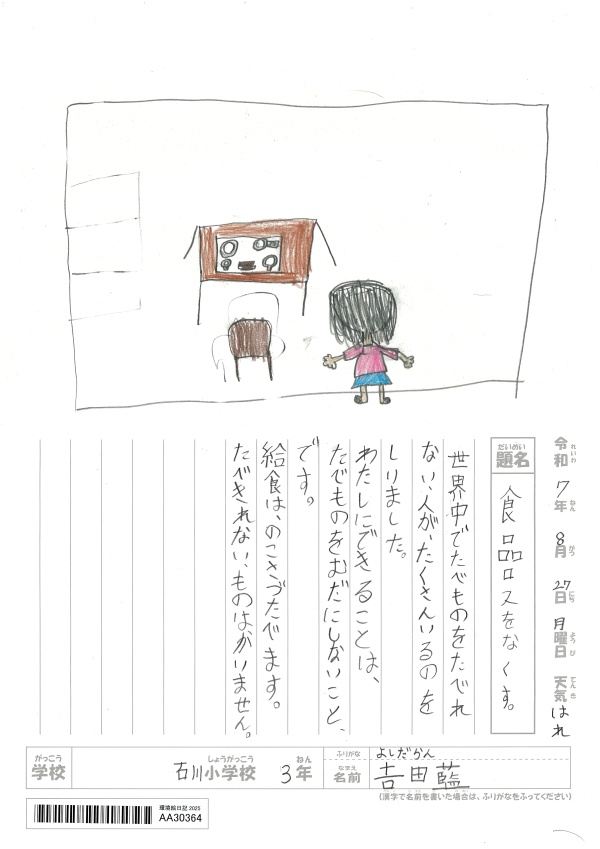 令和7年8月27日月曜日 天気はれ
れいわ ねん がつ にち ようび てんき
だいめい
題名 食品ロスをなくす。
世界中でたべものをたべれ
ない、人が、たくさんいるのを
しりました。
わたしにできることは、
たべものをむだにしないこと、
です。
給食は、のこさづたべます。
たべきれない、ものはがいません。
がっこう しょうがっこう ねん
学校 石川小学校 3年
ふりがな よしだかん
なまえ
名前 吉田藍
(漢字で名前を書いた場合は、ふりがなをふってください)
環境絵日記 2025
AA30364